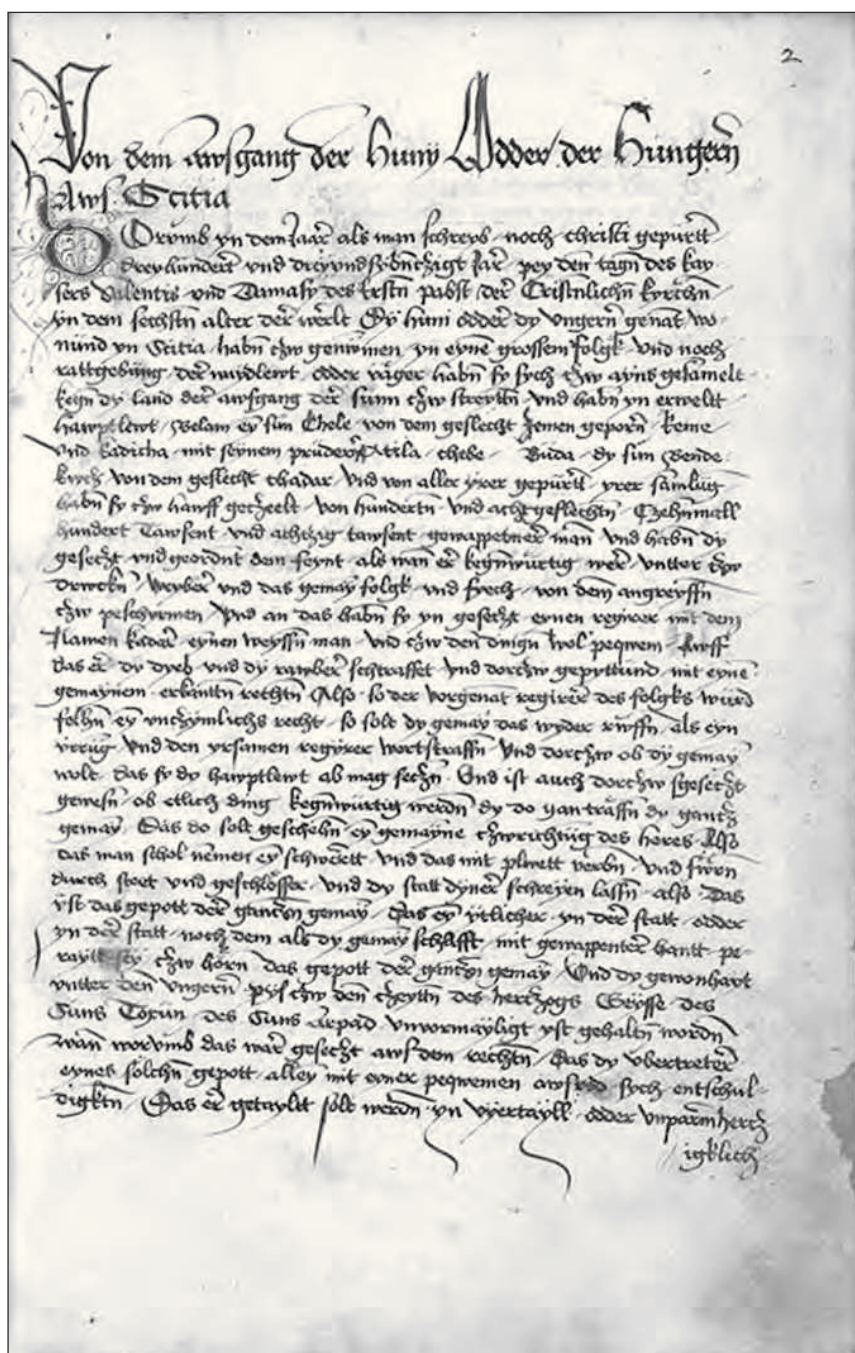 2
Von dem awsgang der Huny Adder der Hungern̄
Aws Scitia
Dorumb yn dem Jaar als man schreyb noch christi gepurtt
drey hundert und dreyundsybn̄czigt Jar pey den tagn̄ des kay
sers Valentis und Damasy des Erstn̄ pabst der Cristnlichn̄ kyrchn̄
yn dem sechstn̄ alter der werlt Dy huni odder dy ungern̄ genāt wo
nund yn Scitia habn̄ czw genūmen yn eynē grossem folgk und noch
rattgebung der wydlewt odder räger habn̄ sy sych czw ayns gesāmelt
kegn̄ dy land der awsgang der sunn czw streyttn̄ und habn̄ yn erweltt
hawptlewt Welam eȳ sun Chele von dem geslecht Zemen geporn̄ keme
und kadicha mit seynem pruder Attila chebe Buda dy sun Bende
kucz von dem geslecht Chadar Und von aller yrer gepurtt yrer sāmlūg
habn̄ sy czw hawff geczeelt von hundertn̄ und acht geslechtn̄ Czehn̄mall
hundert Tawsent und achtzig tawsent gewappetner man und habn̄ dy
geseczt und geordnt dem feynt als wan er kegn̄wurtig wer untter czw
druckn̄ weyber und das gemay folgk und fyech von dem angreyffn̄
czw peschyrmen Und an das habn̄ sy yn geseczt eynen regirer mit dem
Namen kadar eynen weyssn̄ man und czw den dingn̄ wol peqwem Awff
das er dy dyeb und dy rawber schtraffet und dorczw gepyttund mit eynē
gemaynem erkāntn̄ rechtn̄ Also so der vorgenāt regirer des folgks wurd
felln̄ eȳ unczymlichs recht so solt dy gemay das wyder rwffn̄ als eyn
yrrūg und den yrsamen regyrer wortstraffn̄ und dorczw ob dy gemay
wolt das sy dy hawptlewt ab mag seczn̄ Und ist auch dorczw geseczt
gewesn̄ ob etlich ding kegn̄wurtig werdn̄ dy do an traffn̄ dy gancz
gemay Das do solt geschehn̄ eȳ gemayne czwrichtūg des heres Also
das man schol nemen eȳ schwertt und das mit plwett verbn̄ und furen
durch stett und geschlosser und dy statt dyner schreyen lassn̄ also Das
yst das gepott der ganczn̄ gemay Das eȳ ytlicher yn der statt odder
yn der statt noch dem als dy gemay schafft mit gewappenter hantt pe
raytt sey czw horn̄ das gepott der ganczn̄ gemay Und dy gewonhayt
untter den ungern̄ pys czw den czeyttn̄ des herczogs Geysse des
Suns Toxun des Suns Arpad unvormayligt yst gehaltn̄ wordn̄
wan worumb das war geseczt aws den rechtn̄ Das dy vbertreter
eynes solchn̄ gepott alley mit eyner peqwemen awsred sych entschul-
digktn̄ Das er getayltt solt werdn̄ yn vyertayll odder unparmhercz
igklich